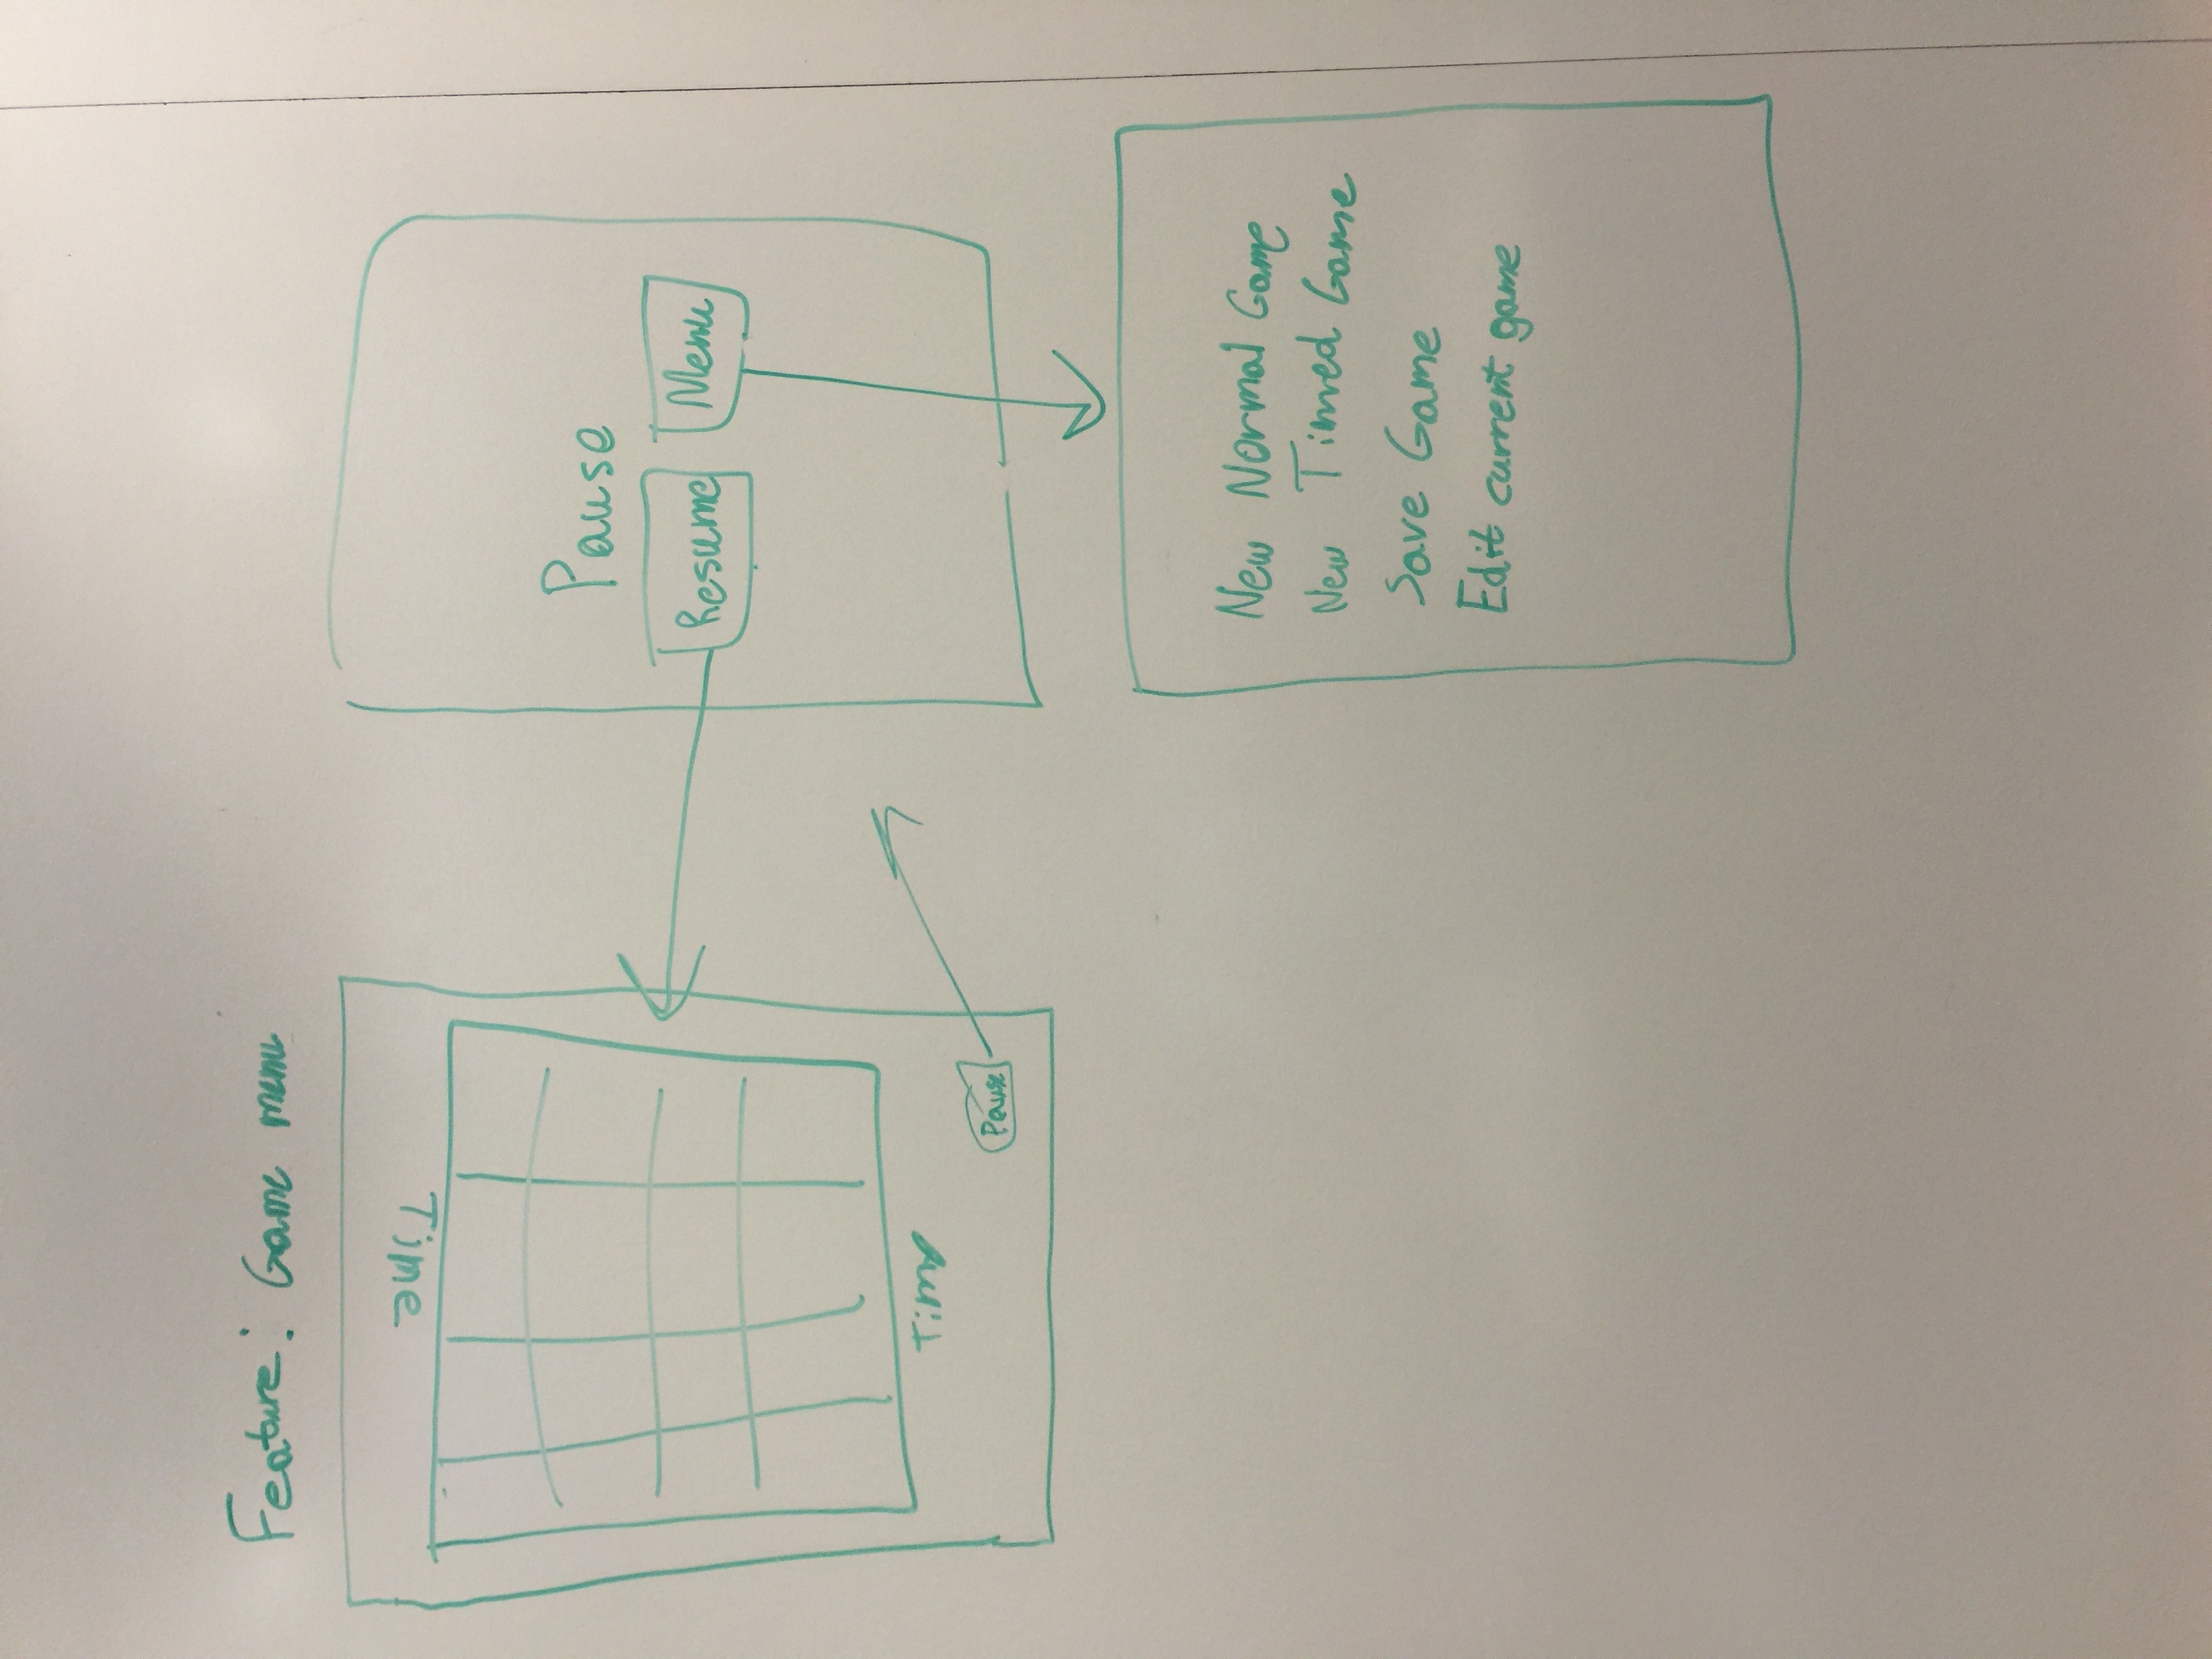 Feature: Game menu
Time
Time
Pause
Pause
Resume
Menu
New Normal Game
New Timed Game
Save Game
Edit current game